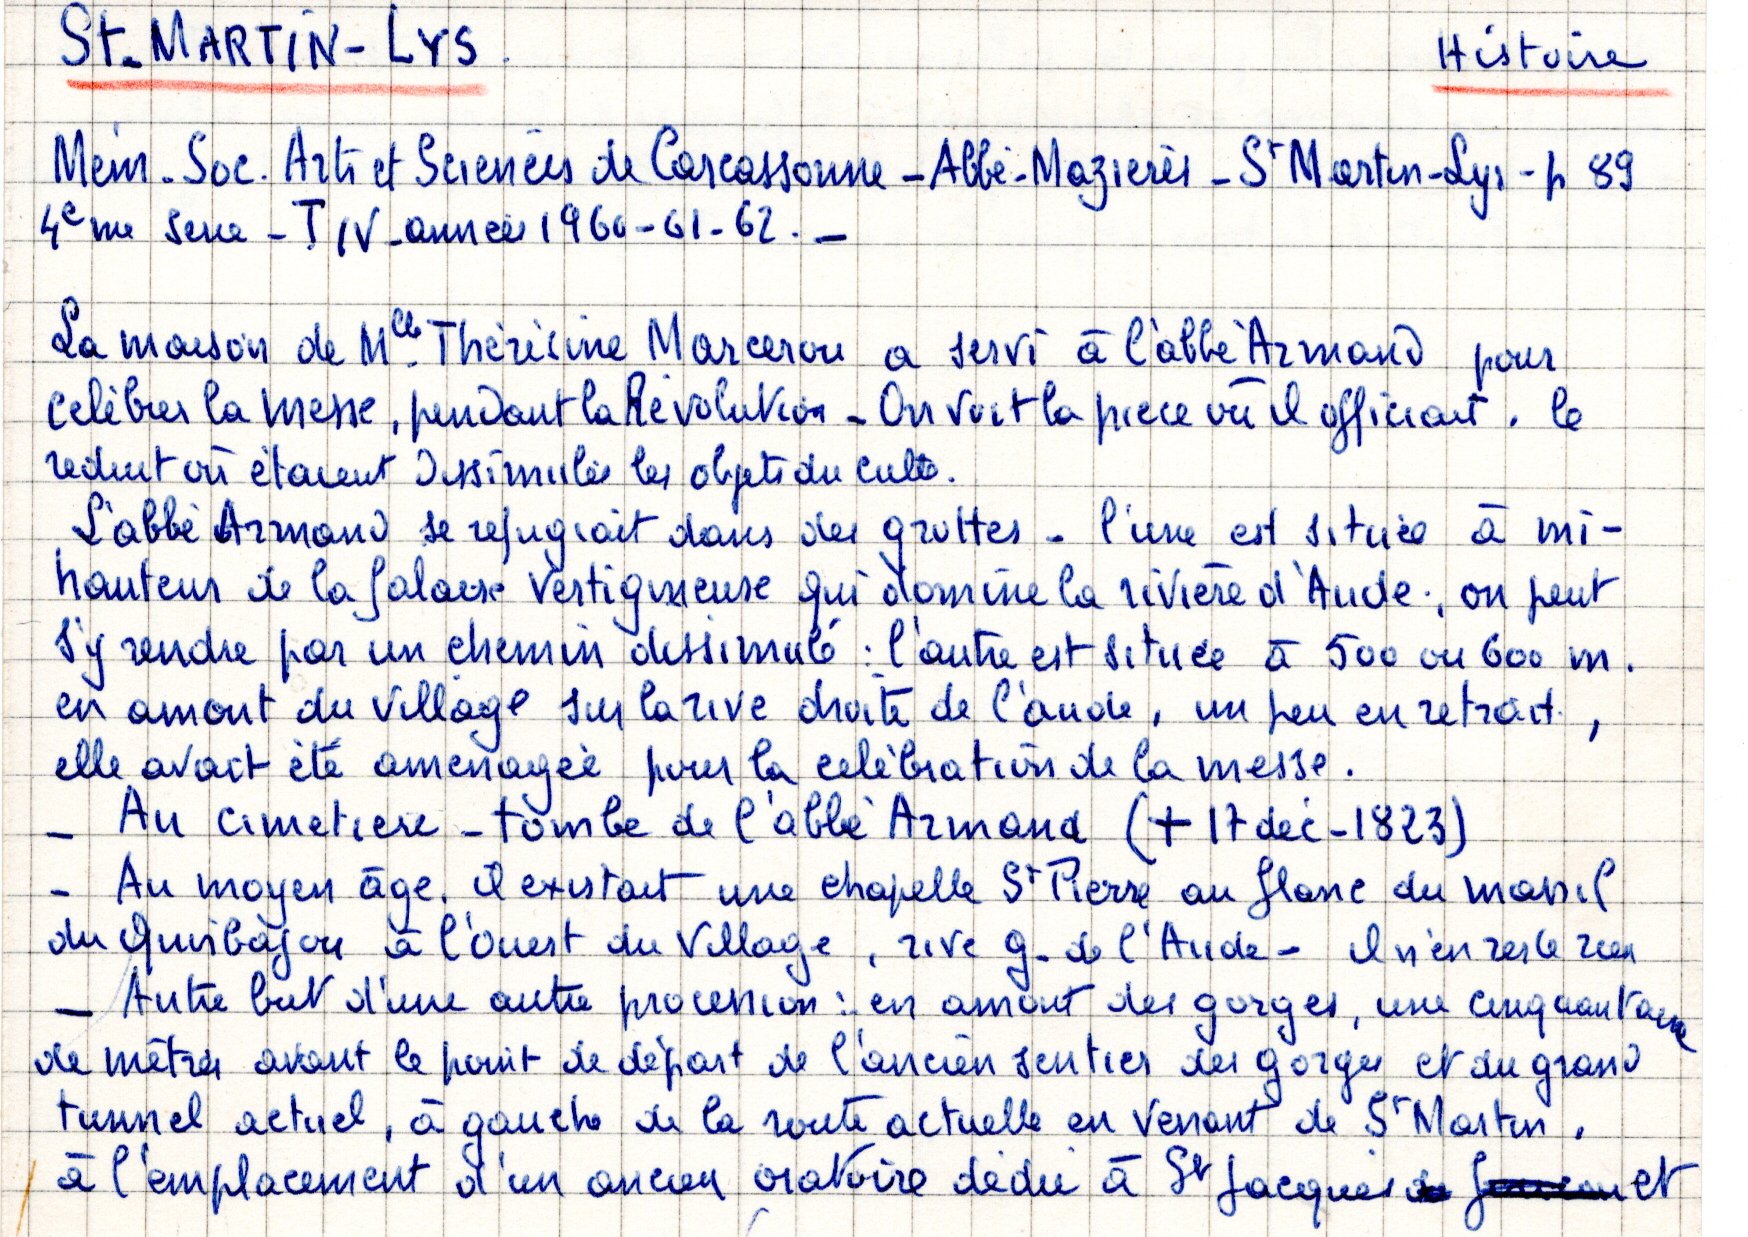 St-MARTIN-LYS.
Histoire
Mém. Soc. Arts et Sciences de Carcassonne - Abbé Mazières - St Martin-Lys - p 89
4eme serie - T IV - années 1960-61-62. -
La maison de Mlle Thérésine Marcerou a servi à l'abbé Armand pour
celébrer la messe, pendant la Révolution - On voit la piece où il officiait, le
reduit où étaient dissimulés les objets du culte.
L'abbé Armand se refugiait dans des grottes - l'une est située à mi-
hauteur de la falaise vertigineuse qui domine la rivière d'Aude ; on peut
s'y rendre par un chemin dissimulé : l'autre est située à 500 ou 600 m.
en amont du village sur la rive droite de l'aude, un peu en retrait,
elle avait été amenagée pour la celébration de la messe.
- Au cimetiere - tombe de l'abbé Armand (+ 17 déc - 1823)
- Au moyen âge, il existait une chapelle St Pierre au flanc du massif
du Quirbajou à l'ouest du village, rive g. de l'Aude - il n'en reste rien
- Autre but d'une autre procession : en amont des gorges, une cinquantaine
de mètres avant le point de départ de l'ancien sentier des gorges et du grand
tunnel actuel, à gauche de la route actuelle en venant de St Martin,
à l'emplacement d'un ancien oratoire dédié à St Jacques et